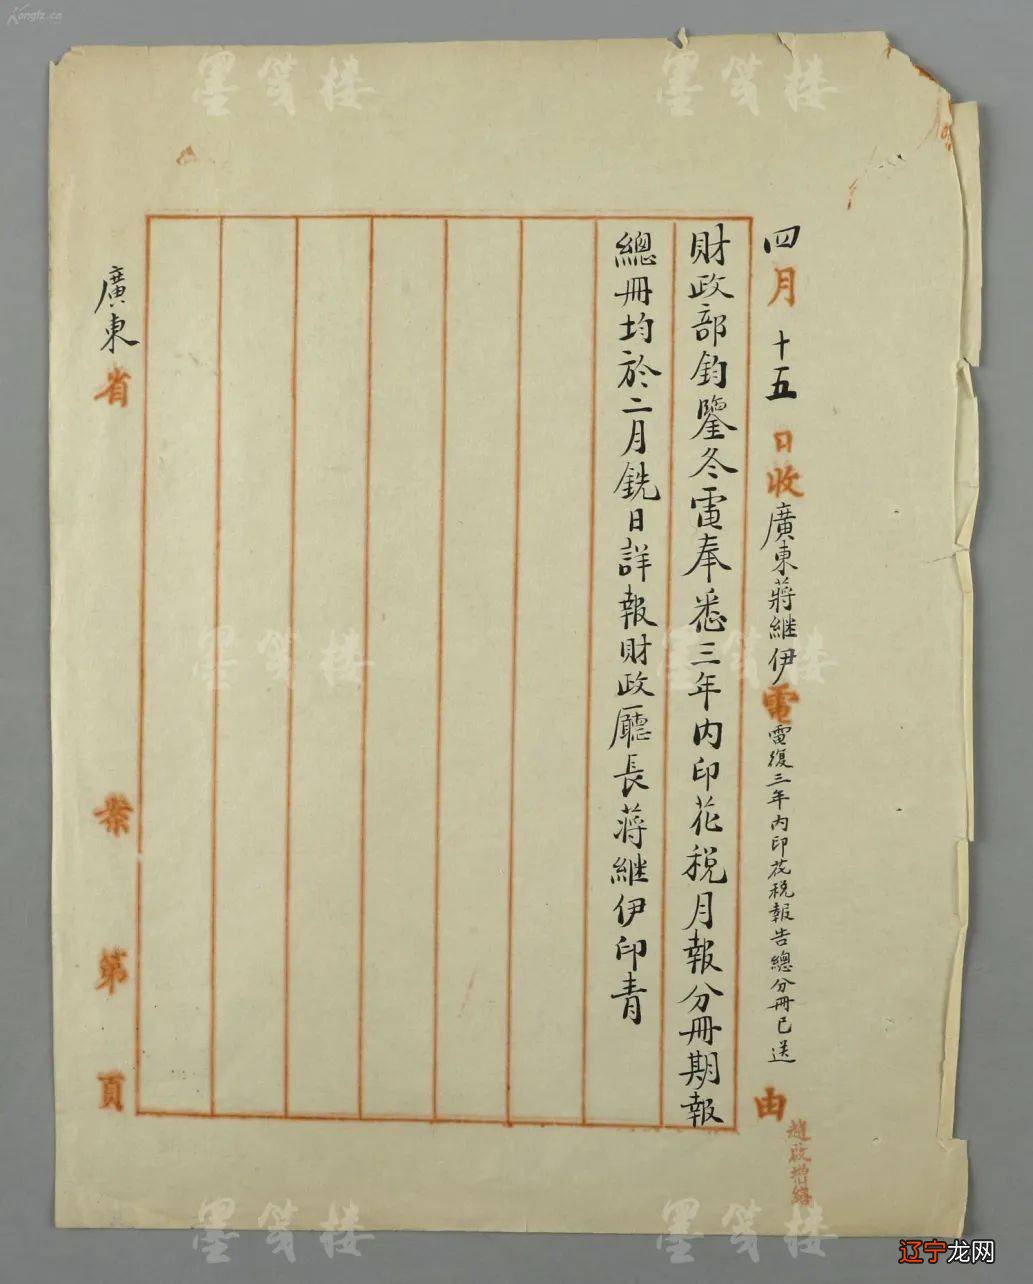 四月十五日收廣東蔣継伊電電復三年內印花税報告總分冊已送由
趙啟增繕
財政部鈞鑒冬電奉悉三年内印花税月報分冊期報
總冊均於二月銑日詳報財政廳長蔣継伊印青
廣東省 案 第 頁
墨笺楼 墨笺楼
墨笺楼 墨笺楼
墨笺楼 墨笺楼
Kongfz.cn
辽宁龙网